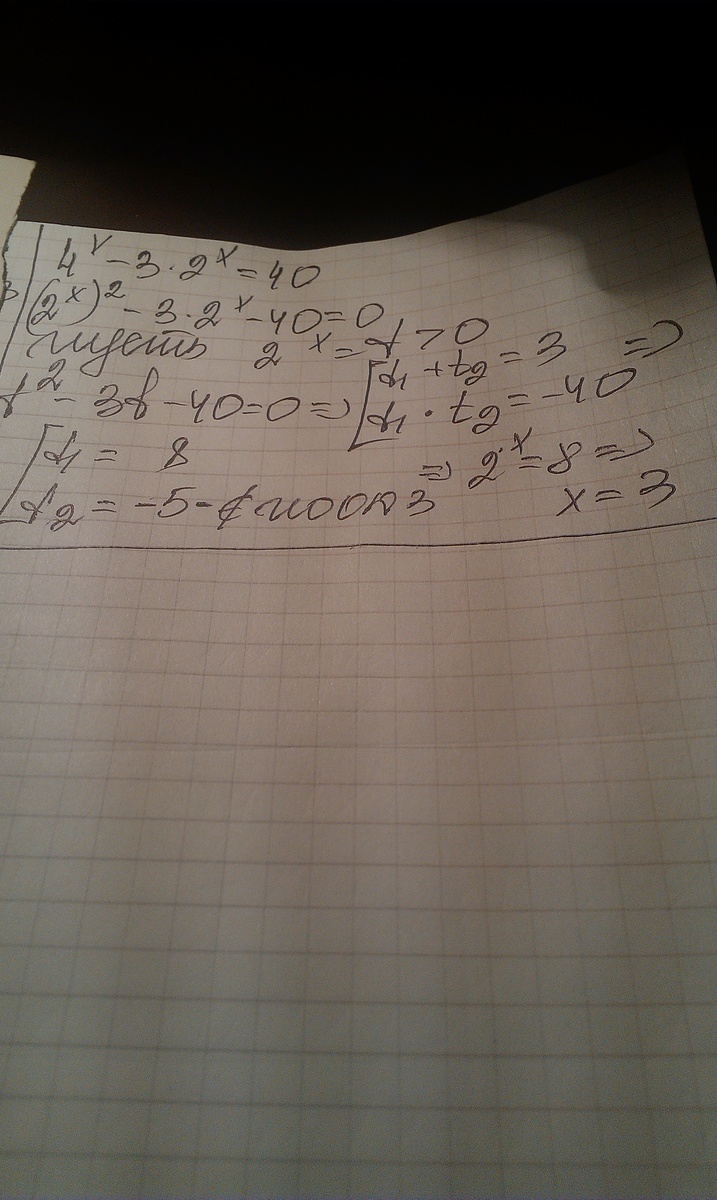 4ˣ - 3 · 2ˣ = 40
(2ˣ)² - 3 · 2ˣ - 40 = 0
пусть 2ˣ = t > 0
t² - 3t - 40 = 0 => [t₁ + t₂ = 3 =>
t₁ · t₂ = -40
[t₁ = 8
t₂ = -5 - ∉ => 2ˣ = 8 =>
x = 3